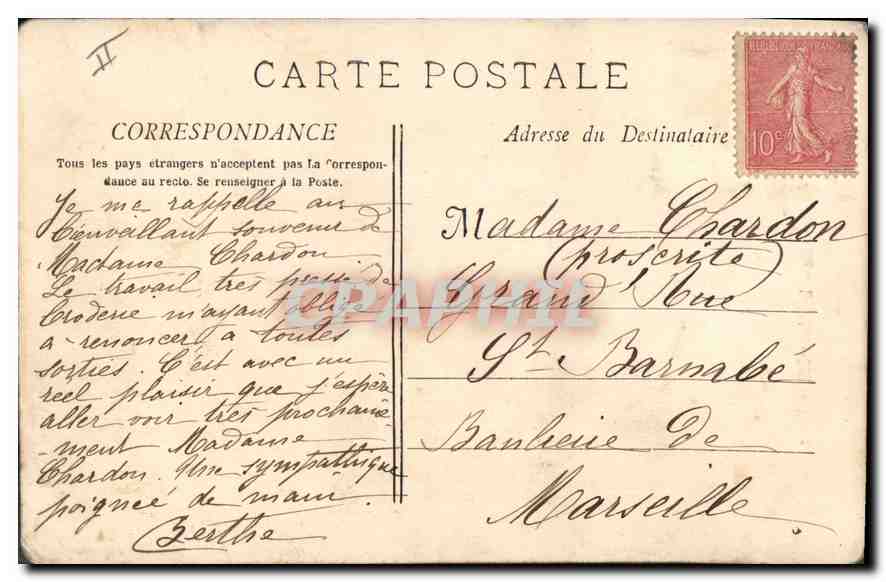 II
CARTE POSTALE
REPUBLIQUE FRANÇAISE
10c
CORRESPONDANCE
Adresse du Destinataire
Tous les pays étrangers n'acceptent pas La Correspon-
dance au recto. Se renseigner à la Poste.
Je me rappelle au
bienveillant souvenir de
Madame Chardon.
Le travail très pressé de
broderie m'ayant obligé
a renoncer a toutes
sorties. C'est avec un
reel plaisir que j'espère
aller voir très prochaine-
-ment Madame
Chardon. Une sympathique
poignée de main
Berthe
Madame Chardon
(proscrite)
Grand'Rue
St Barnabé
Banlieue de
Marseille
CPAPHIL